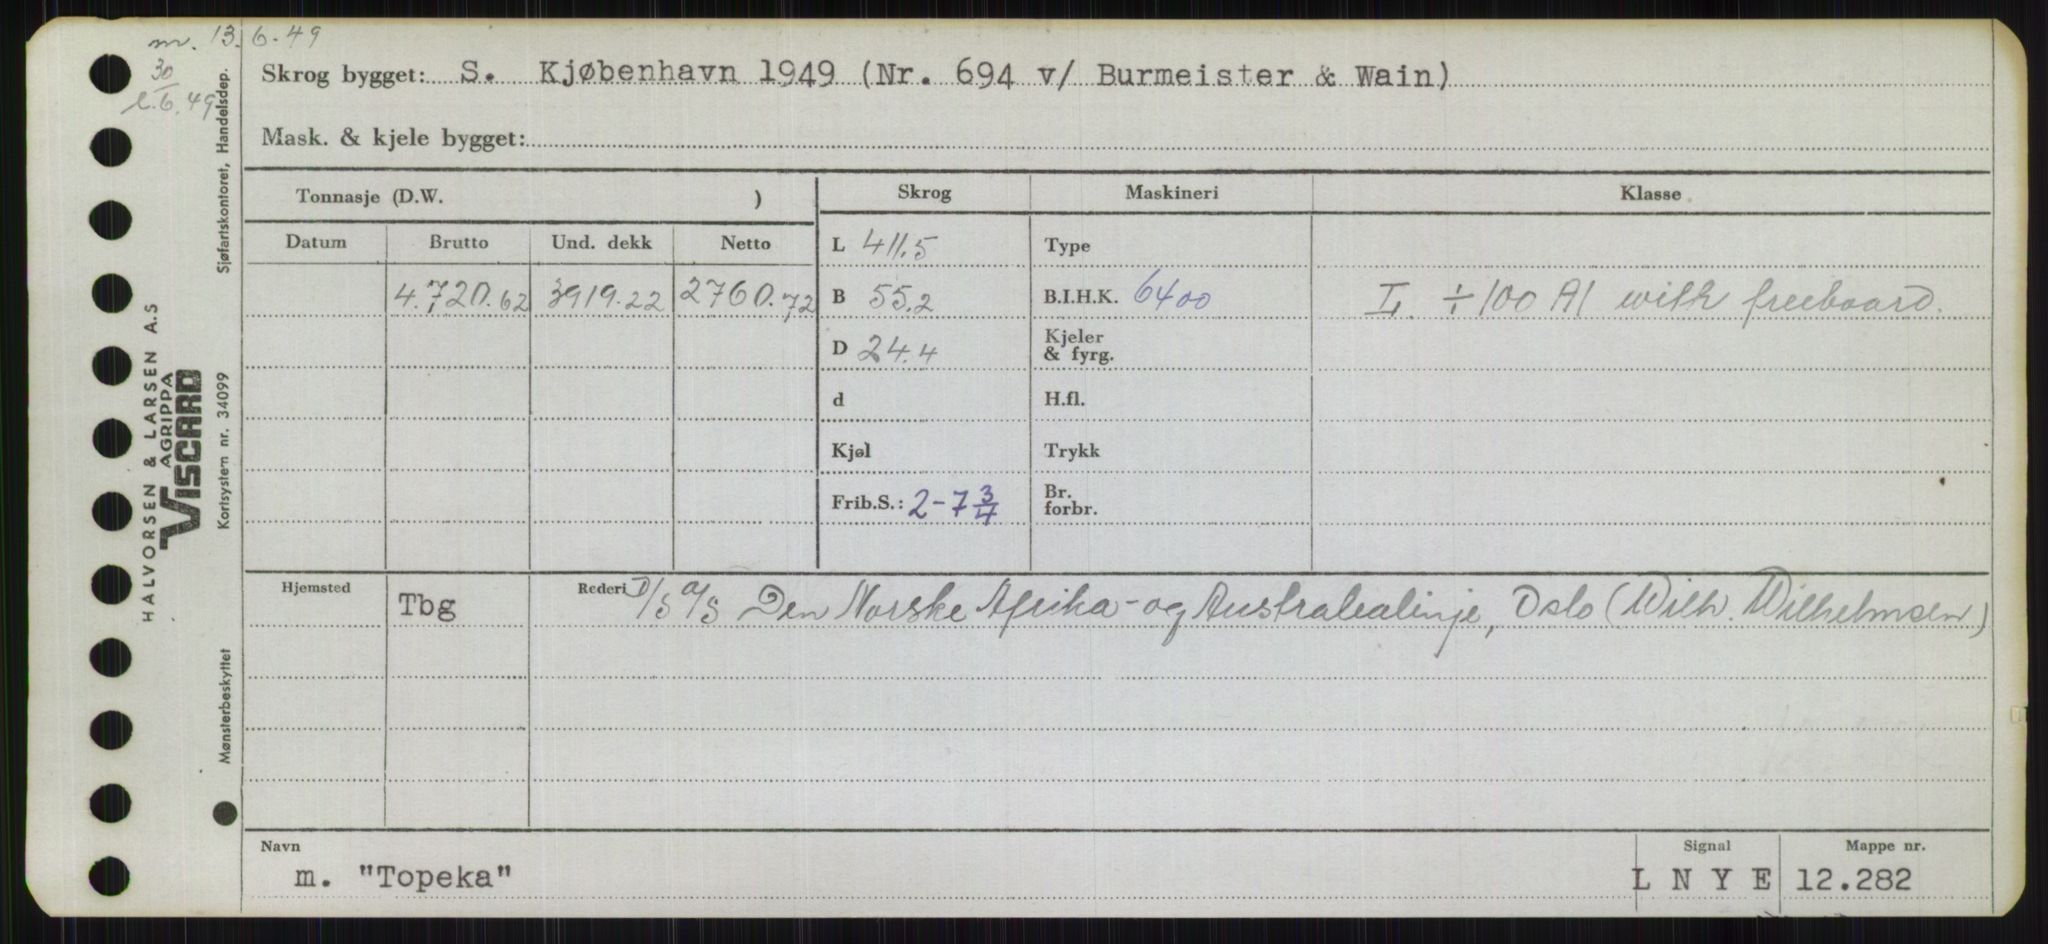 m. 13.6.49
30
l. 6.49
Skrog bygget: S. Kjøbenhavn 1949 (Nr. 694 v/ Burmeister & Wain)
Mask. & kjele bygget:
Tonnasje (D.W. ) Skrog Maskineri Klasse
Datum Brutto Und. dekk Netto L 411,5 Type
4.720.62 3919.22 2760.72 B 55,2 B.I.H.K. 6400 L. ÷ 100 A1 with freeboard.
D 24.4 Kjeler & fyrg.
d H.fl.
Kjøl Trykk
Frib.S.: 2-7 3/4 Br. forbr.
Hjemsted Tbg Rederi D/S A/S Den Norske Afrika- og Australielinje, Oslo (Wilh. Wilhelmsen)
Navn Signal Mappe nr.
m. "Topeka" L N Y E 12.282
HALVORSEN & LARSEN A.S
AGRIPPA
VISCARD
Sjøfartskontoret, Handelsdep.
Kortsystem nr. 34099
Mønsterbeskyttet